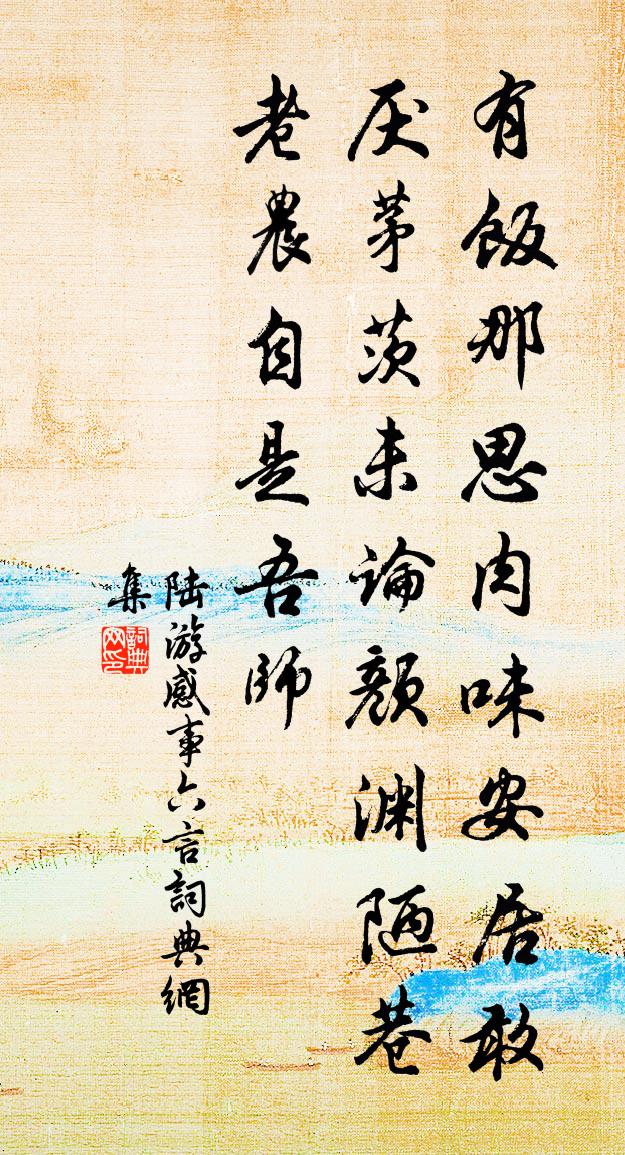 有飯那思肉味安居敢
厌茅茨未论颜渊陋巷
老農自是吾师
陆游感事六言詞典網
集
詞典网印